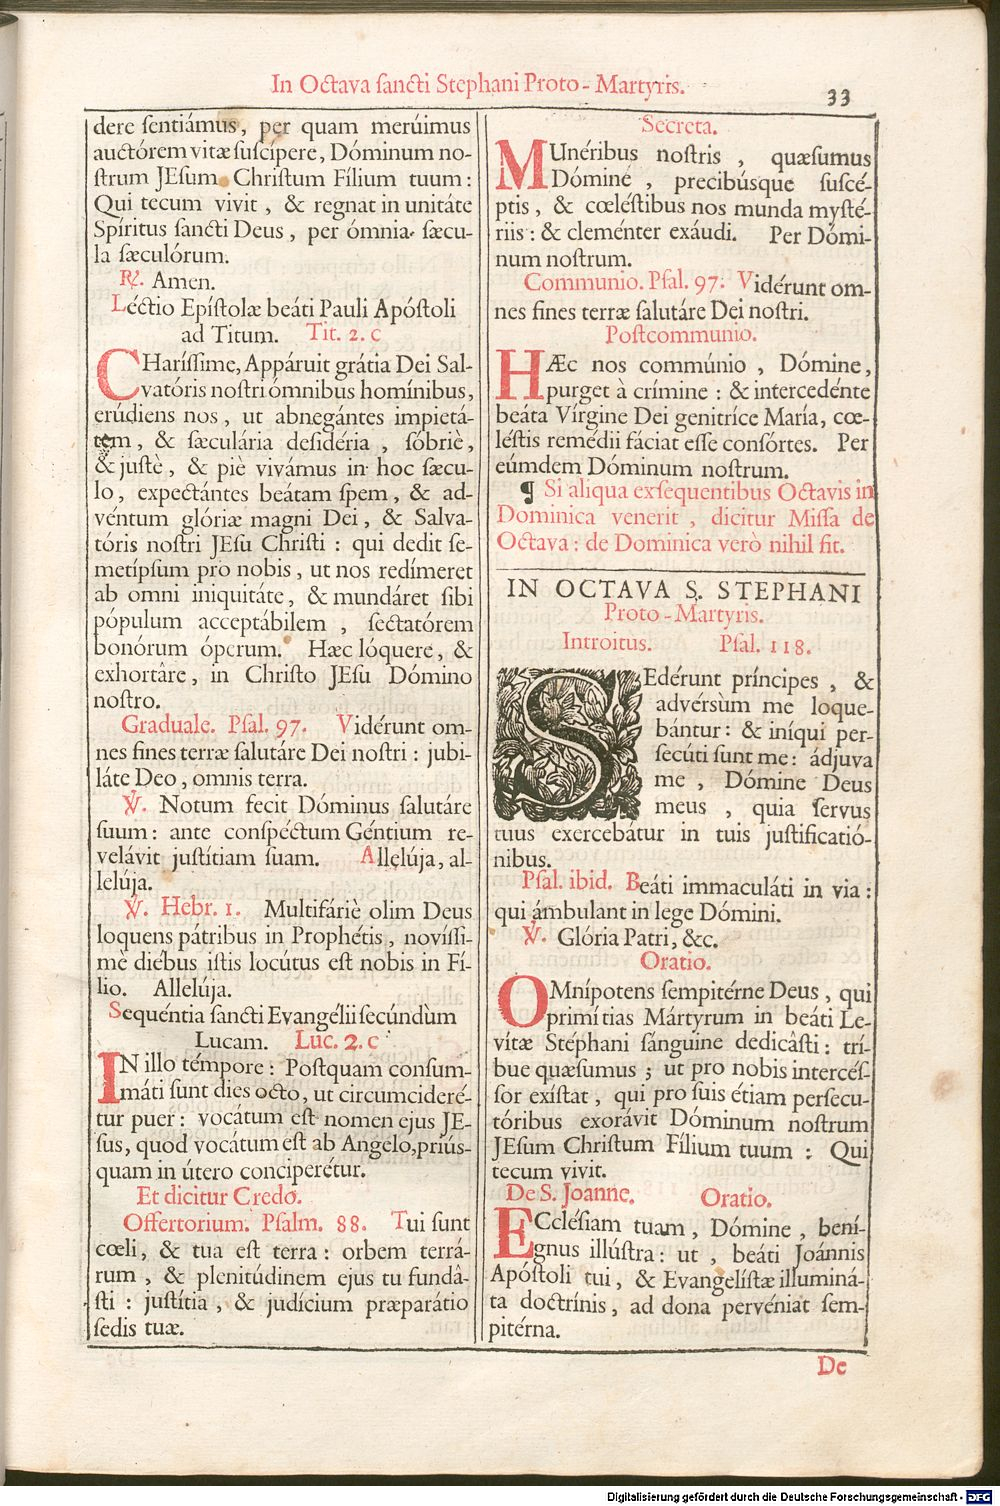 In Octava sancti Stephani Proto-Martyris.
33
dere sentiámus, per quam merúimus
auctórem vitæ suscipere, Dóminum no-
strum JEsum Christum Fílium tuum:
Qui tecum vivit, & regnat in unitáte
Spíritus sancti Deus, per ómnia sæcu-
la sæculórum.
℟. Amen.
Léctio Epístolæ beáti Pauli Apóstoli
ad Titum. Tit. 2. c
CHaríssime, Appáruit grátia Dei Sal-
vatóris nostri ómnibus homínibus,
erúdiens nos, ut abnegántes impietá-
tem, & sæculária desidéria, sóbriè,
& justè, & piè vivámus in hoc sæcu-
lo, expectántes beátam spem, & ad-
véntum glóriæ magni Dei, & Salva-
tóris nostri JEsu Christi: qui dedit se-
metípsum pro nobis, ut nos redímeret
ab omni iniquitáte, & mundáret sibi
pópulum acceptábilem, sectatórem
bonórum óperum. Hæc lóquere, &
exhortâre, in Christo JEsu Dómino
nostro.
Graduale. Psal. 97. Vidérunt om-
nes fines terræ salutáre Dei nostri: jubi-
láte Deo, omnis terra.
℣. Notum fecit Dóminus salutáre
suum: ante conspéctum Géntium re-
velávit justítiam suam. Allelúja, al-
lelúja.
℣. Hebr. 1. Multifáriè olim Deus
loquens pátribus in Prophétis, novíssi-
mè diébus istis locútus est nobis in Fí-
lio. Allelúja.
Sequéntia sancti Evangélii secúndùm
Lucam. Luc. 2. c
IN illo témpore: Postquam consum-
máti sunt dies octo, ut circumcideré-
tur puer: vocátum est nomen ejus JE-
sus, quod vocátum est ab Angelo, priús-
quam in útero conciperétur.
Et dicitur Credo.
Offertorium. Psalm. 88. Tui sunt
cœli, & tua est terra: orbem terrá-
rum, & plenitúdinem ejus tu fundâ-
sti: justítia, & judícium præparátio
sedis tuæ.
Secreta.
MUnéribus nostris, quæsumus
Dómine, precibúsque suscé-
ptis, & cœléstibus nos munda mysté-
riis: & cleménter exáudi. Per Dómi-
num nostrum.
Communio. Psal. 97: Vidérunt om-
nes fines terræ salutáre Dei nostri.
Postcommunio.
HÆc nos commúnio, Dómine,
purget à crímine: & intercedénte
beáta Vírgine Dei genitríce María, cœ-
léstis remédii fáciat esse consórtes. Per
eúmdem Dóminum nostrum.
¶ Si aliqua exsequentibus Octavis in
Dominica venerit, dicitur Missa de
Octava: de Dominica verò nihil fit.
IN OCTAVA S. STEPHANI
Proto-Martyris.
Introitus. Psal. 118.
SEdérunt príncipes, &
advérsùm me loque-
bántur: & iníqui per-
secúti sunt me: ádjuva
me, Dómine Deus
meus, quia servus
tuus exercebátur in tuis justificatió-
nibus.
Psal. ibid. Beáti immaculáti in via:
qui ámbulant in lege Dómini.
℣. Glória Patri, &c.
Oratio.
OMnípotens sempitérne Deus, qui
primítias Mártyrum in beáti Le-
vítæ Stéphani sánguine dedicâsti: trí-
bue quæsumus; ut pro nobis intercés-
sor exístat, qui pro suis étiam persecu-
tóribus exorávit Dóminum nostrum
JEsum Christum Fílium tuum: Qui
tecum vivit.
De S. Joanne. Oratio.
ECclésiam tuam, Dómine, bení-
gnus illústra: ut, beáti Joánnis
Apóstoli tui, & Evangelístæ illuminá-
ta doctrínis, ad dona pervéniat sem-
pitérna.
De
Digitalisierung gefördert durch die Deutsche Forschungsgemeinschaft - DFG